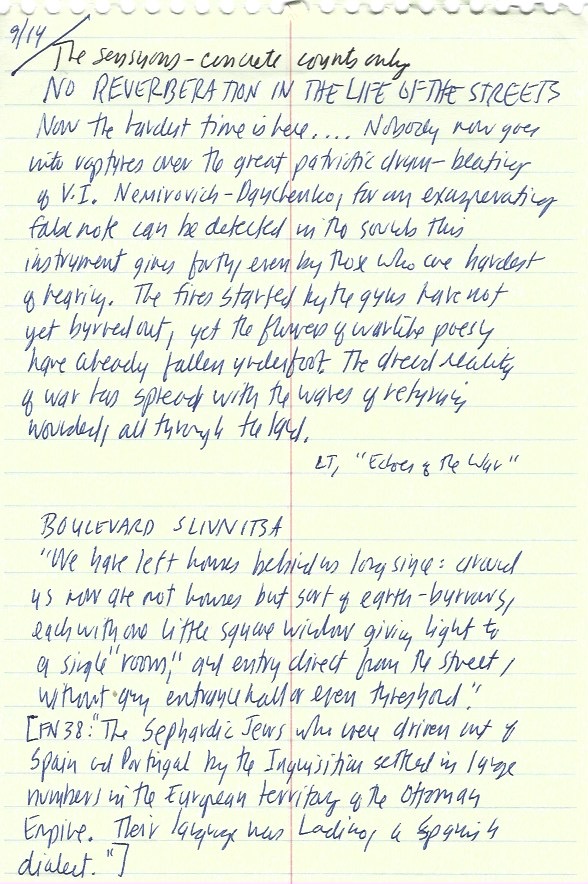 9/14
The sensuous-concrete counts only
NO REVERBERATION IN THE LIFE OF THE STREETS
Now the hardest time is here.... Nobody now goes
into raptures over the great patriotic drum-beating
of V.I. Nemirovich-Danchenko, for an exasperating
false note can be detected in the sounds this
instrument gives forth, even by those who are hardest
of hearing. The fires started by the guns have not
yet burned out, yet the flowers of warlike poesy
have already fallen underfoot. The dread reality
of war has spread with the waves of returning
wounded, all through the land.
LT, "Echoes of the War"
BOULEVARD SLIVNITSA
"We have left houses behind us long since: around
us now are not houses but sort of earth-burrows,
each with one little square window giving light to
a single "room," and entry direct from the street,
without any entrance hall or even threshold."
[FN 38: "The Sephardic Jews who were driven out of
Spain and Portugal by the Inquisition settled in large
numbers in the European territory of the Ottoman
Empire. Their language was Ladino, a Spanish
dialect."]